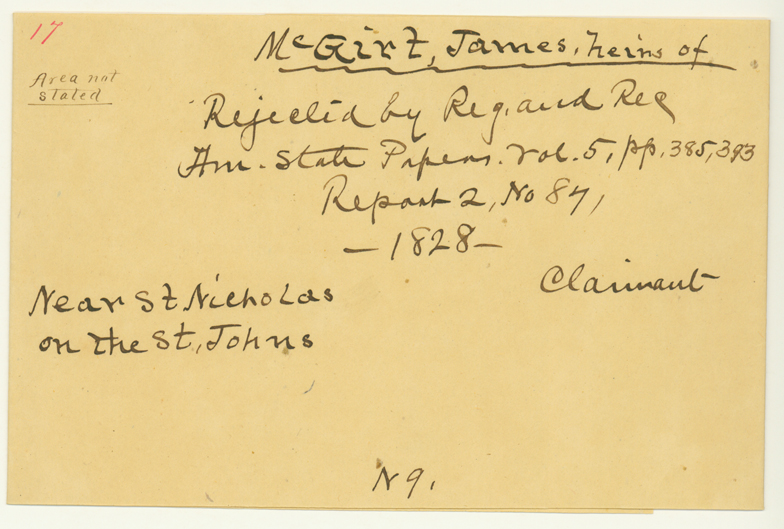 17
McGirt, James, heirs of
Area not
stated
Rejected by Reg. and Rec
Am. State Papers. Vol. 5, pp. 385, 393
Report 2, No 87,
— 1828 —
Claimant
Near St. Nicholas
on the St. Johns
N 9.